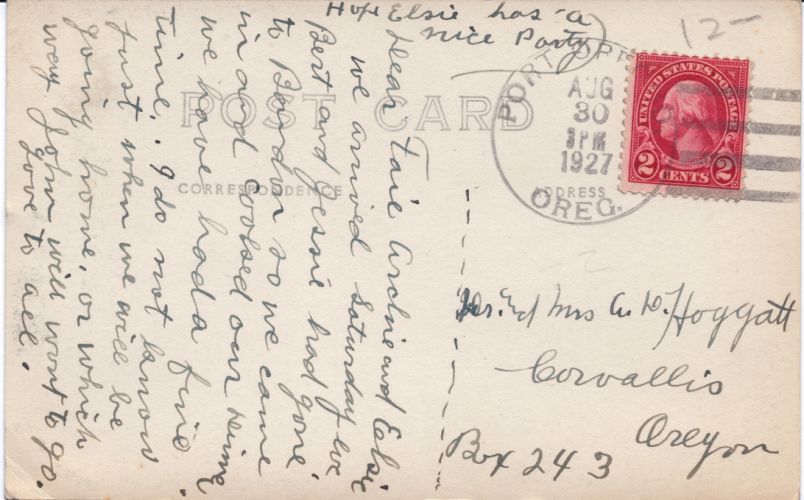 Hope Elsie has a
nice Party
12-
POST CARD
CORRESPONDENCE
ADDRESS
PORT ORF
AUG
30
3 PM
1927
OREG.
UNITED STATES POSTAGE
2 CENTS 2
Dear Archie and Elsie
we arrived Saturday eve
Bert and Jessie had gone
to Bandon so we came
in and cooked our dinner
we have had a fine
time. I do not know
just when we will be
going home, or which
way John will want to go.
love to all.
Mr. and Mrs A. W. Hoggatt
Corvallis
Oregon
Box 243